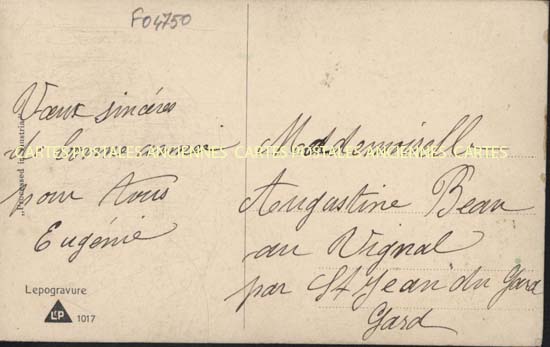 F04750
Vœux sincères
de bonne année
pour tous
Eugénie
Mademoiselle
Augustine Beau
au Vignal
par St Jean du Gard
Gard
„Processed in Austria"
CARTES POSTALES ANCIENNES CARTES POSTALE ANCIENNES CARTES
Lepogravure
LP 1017